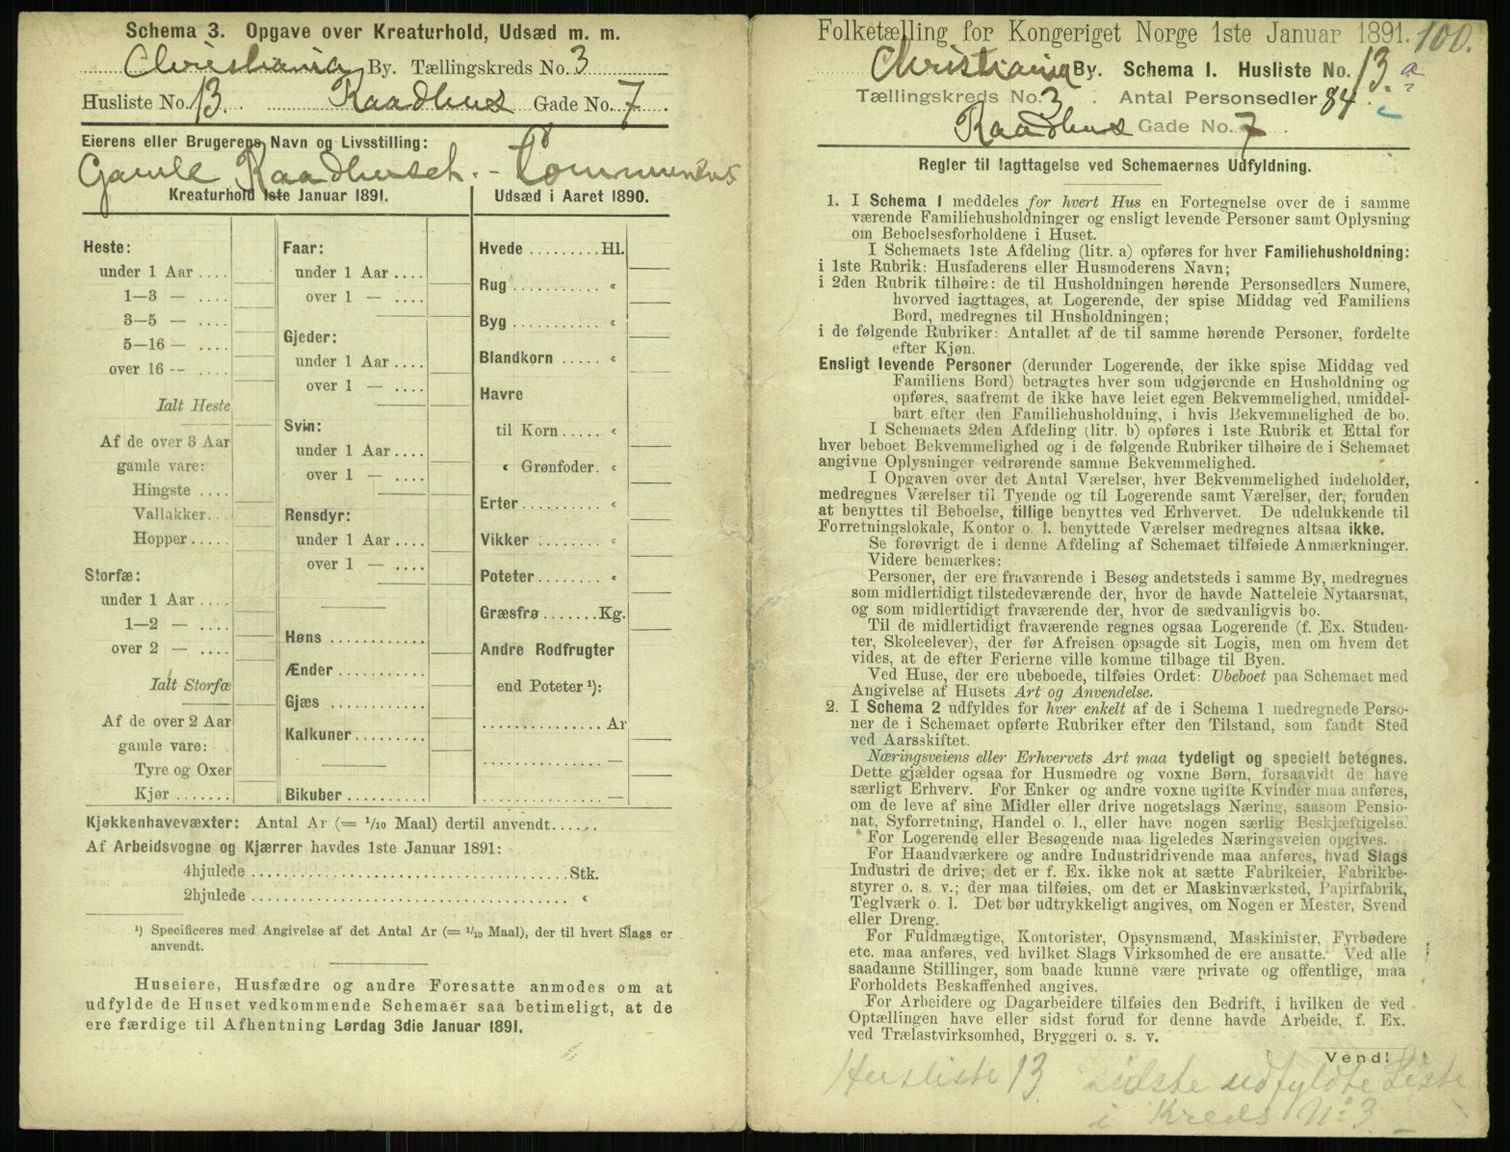 Schema 3. Opgave over Kreaturhold, Udsæd m. m.
Christiania By. Tællingskreds No. 3
Husliste No. 13. Raadhus Gade No. 7.
Eierens eller Brugerens Navn og Livsstilling:
Gamle Raadhuset. - Communens
Kreaturhold 1ste Januar 1891.
Heste:
under 1 Aar ....
1—3 — ....
3—5 — ....
5—16 — ....
over 16 -- ....
Ialt Heste
Af de over 3 Aar
gamle vare:
Hingste ....
Vallakker...
Hopper .....
Storfæ:
under 1 Aar ....
1—2 — ....
over 2 — ....
Ialt Storfæ
Af de over 2 Aar
gamle vare:
Tyre og Oxer
Kjør .......
Faar:
under 1 Aar ....
over 1 — ....
Gjeder:
under 1 Aar ....
over 1 — ....
Svin:
under 1 Aar ....
over 1 — ....
Rensdyr:
under 1 Aar ....
over 1 — ....
Høns ............
Ænder ...........
Gjæs ............
Kalkuner.........
Bikuber ..........
Udsæd i Aaret 1890.
Hvede ......... Hl.
Rug ........... «
Byg ........... «
Blandkorn ..... «
Havre
til Korn ..... «
« Grønfoder. «
Erter .......... «
Vikker ........ «
Poteter ........ «
Græsfrø ....... Kg.
Andre Rodfrugter
end Poteter ¹):
............... Ar
............... —
............... —
Kjøkkenhavevæxter: Antal Ar (= 1/10 Maal) dertil anvendt......
Af Arbeidsvogne og Kjærrer havdes 1ste Januar 1891:
4hjulede ........................................ Stk.
2hjulede ........................................ «
¹) Specificeres med Angivelse af det Antal Ar (= 1/10 Maal), der til hvert Slags er
anvendt.
Huseiere, Husfædre og andre Foresatte anmodes om at
udfylde de Huset vedkommende Schemaer saa betimeligt, at de
ere færdige til Afhentning Lørdag 3die Januar 1891.
Folketælling for Kongeriget Norge 1ste Januar 1891. 100.
Christiania By. Schema I. Husliste No. 13. a
Tællingskreds No. 3. Antal Personsedler 84.
Raadhus Gade No. 7.
Regler til Iagttagelse ved Schemaernes Udfyldning.
1. I Schema I meddeles for hvert Hus en Fortegnelse over de i samme
værende Familiehusholdninger og ensligt levende Personer samt Oplysning
om Beboelsesforholdene i Huset.
I Schemaets 1ste Afdeling (litr. a) opføres for hver Familiehusholdning:
i 1ste Rubrik: Husfaderens eller Husmoderens Navn;
i 2den Rubrik tilhøire: de til Husholdningen hørende Personsedlers Numere,
hvorved iagttages, at Logerende, der spise Middag ved Familiens
Bord, medregnes til Husholdningen;
i de følgende Rubriker: Antallet af de til samme hørende Personer, fordelte
efter Kjøn.
Ensligt levende Personer (derunder Logerende, der ikke spise Middag ved
Familiens Bord) betragtes hver som udgjørende en Husholdning og
opføres, saafremt de ikke have leiet egen Bekvemmelighed, umiddel-
bart efter den Familiehusholdning, i hvis Bekvemmelighed de bo.
I Schemaets 2den Afdeling (litr. b) opføres i 1ste Rubrik et Ettal for
hver beboet Bekvemmelighed og i de følgende Rubriker tilhøire de i Schemaet
angivne Oplysninger vedrørende samme Bekvemmelighed.
I Opgaven over det Antal Værelser, hver Bekvemmelighed indeholder,
medregnes Værelser til Tyende og til Logerende samt Værelser, der, foruden
at benyttes til Beboelse, tillige benyttes ved Erhvervet. De udelukkende til
Forretningslokale, Kontor o. l. benyttede Værelser medregnes altsaa ikke.
Se forøvrigt de i denne Afdeling af Schemaet tilføiede Anmærkninger.
Videre bemærkes:
Personer, der ere fraværende i Besøg andetsteds i samme By, medregnes
som midlertidigt tilstedeværende der, hvor de havde Natteleie Nytaarsnat,
og som midlertidigt fraværende der, hvor de sædvanligvis bo.
Til de midlertidigt fraværende regnes ogsaa Logerende (f. Ex. Studen-
ter, Skoleelever), der før Afreisen opsagde sit Logis, men om hvem det
vides, at de efter Ferierne ville komme tilbage til Byen.
Ved Huse, der ere ubeboede, tilføies Ordet: Ubeboet paa Schemaet med
Angivelse af Husets Art og Anvendelse.
2. I Schema 2 udfyldes for hver enkelt af de i Schema 1 medregnede Perso-
ner de i Schemaet opførte Rubriker efter den Tilstand, som fandt Sted
ved Aarsskiftet.
Næringsveiens eller Erhvervets Art maa tydeligt og specielt betegnes.
Dette gjælder ogsaa for Husmødre og voxne Børn, forsaavidt de have
særligt Erhverv. For Enker og andre voxne ugifte Kvinder maa anføres,
om de leve af sine Midler eller drive nogetslags Næring, saasom Pensio-
nat, Syforretning, Handel o. l., eller have nogen særlig Beskjæftigelse.
For Logerende eller Besøgende maa ligeledes Næringsveien opgives.
For Haandværkere og andre Industridrivende maa anføres, hvad Slags
Industri de drive; det er f. Ex. ikke nok at sætte Fabrikeier, Fabrikbe-
styrer o. s. v.; der maa tilføies, om det er Maskinværksted, Papirfabrik,
Teglværk o. l. Det bør udtrykkeligt angives, om Nogen er Mester, Svend
eller Dreng.
For Fuldmægtige, Kontorister, Opsynsmænd, Maskinister, Fyrbødere
etc. maa anføres, ved hvilket Slags Virksomhed de ere ansatte. Ved alle
saadanne Stillinger, som baade kunne være private og offentlige, maa
Forholdets Beskaffenhed angives.
For Arbeidere og Dagarbeidere tilføies den Bedrift, i hvilken de ved
Optællingen have eller sidst forud for denne havde Arbeide, f. Ex.
ved Trælastvirksomhed, Bryggeri o. s. v.
Vend!
Husliste 13 sidste udfyldte Liste
i Kreds No 3